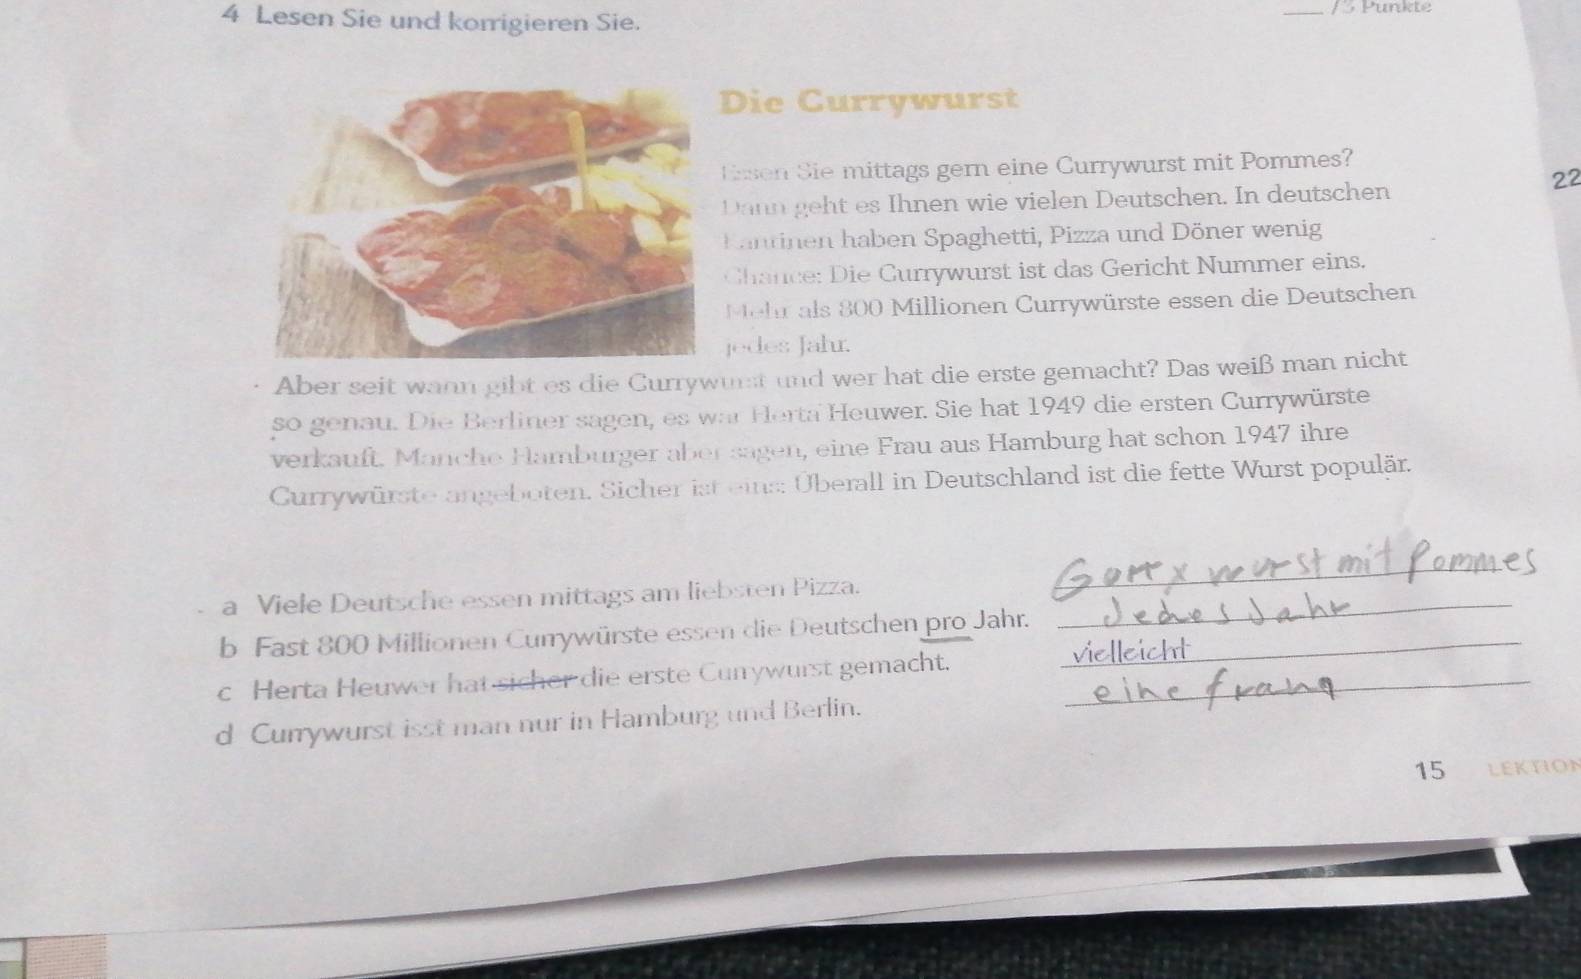 4 Lesen Sie und korrigieren Sie.
/3 Punkte
Die Currywurst
Essen Sie mittags gern eine Currywurst mit Pommes?
Dann geht es Ihnen wie vielen Deutschen. In deutschen
Kantinen haben Spaghetti, Pizza und Döner wenig
Chance: Die Currywurst ist das Gericht Nummer eins.
Mehr als 800 Millionen Currywürste essen die Deutschen
jedes Jahr.
22
Aber seit wann gibt es die Currywurst und wer hat die erste gemacht? Das weiß man nicht
so genau. Die Berliner sagen, es war Herta Heuwer. Sie hat 1949 die ersten Currywürste
verkauft. Manche Hamburger aber sagen, eine Frau aus Hamburg hat schon 1947 ihre
Currywürste angeboten. Sicher ist eins: Überall in Deutschland ist die fette Wurst populär.
a Viele Deutsche essen mittags am liebsten Pizza. Gorrxwurst mit Pommes
b Fast 800 Millionen Currywürste essen die Deutschen pro Jahr. Jedes Jahr
c Herta Heuwer hat sicher die erste Currywurst gemacht. vielleicht
d Currywurst isst man nur in Hamburg und Berlin. eine
15 LEKTION